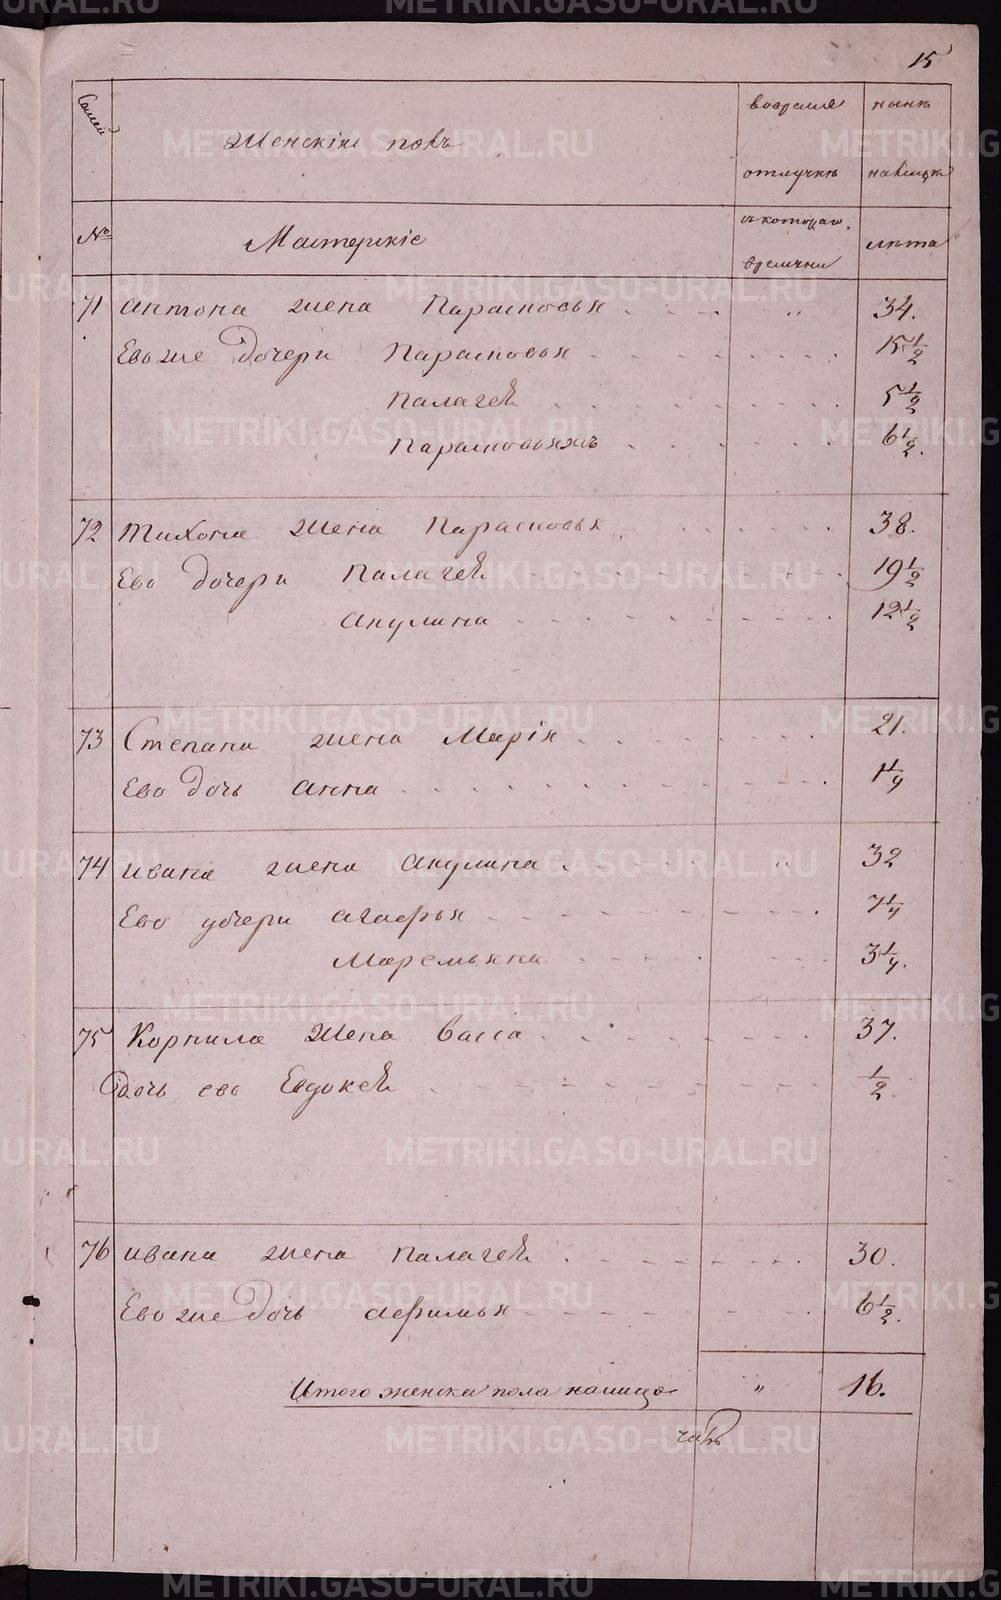 15
Семей
Женскій полъ
вовремя
отлучкѣ
нынѣ
налицѣ
№
Мастерскіе
съ котораго
времени
лѣта
71 Антона жена Парасковья 34.
Евоже дочери Парасковья 15 1/2
Палагея 5 1/2
Парасковьяжъ 6 1/2.
72 Тихона жена Парасковья 38.
Ево дочери Палагея 19 1/2
Акулина 12 1/2
73 Степана жена Марія 21.
Ево дочь Анна 1 1/4
74 Ивана жена Акулина „ 32
Ево дочери Агафья 7 1/4
Маремьяна 3 1/4.
75 Корнила жена Васса 37.
Дочь ево Евдокея 1/2.
76 Ивана жена Палагея 30.
Евоже дочь Афимья 6 1/2.
Итого женска пола налицо „ 16.
METRIKI.GASO-URAL.RU